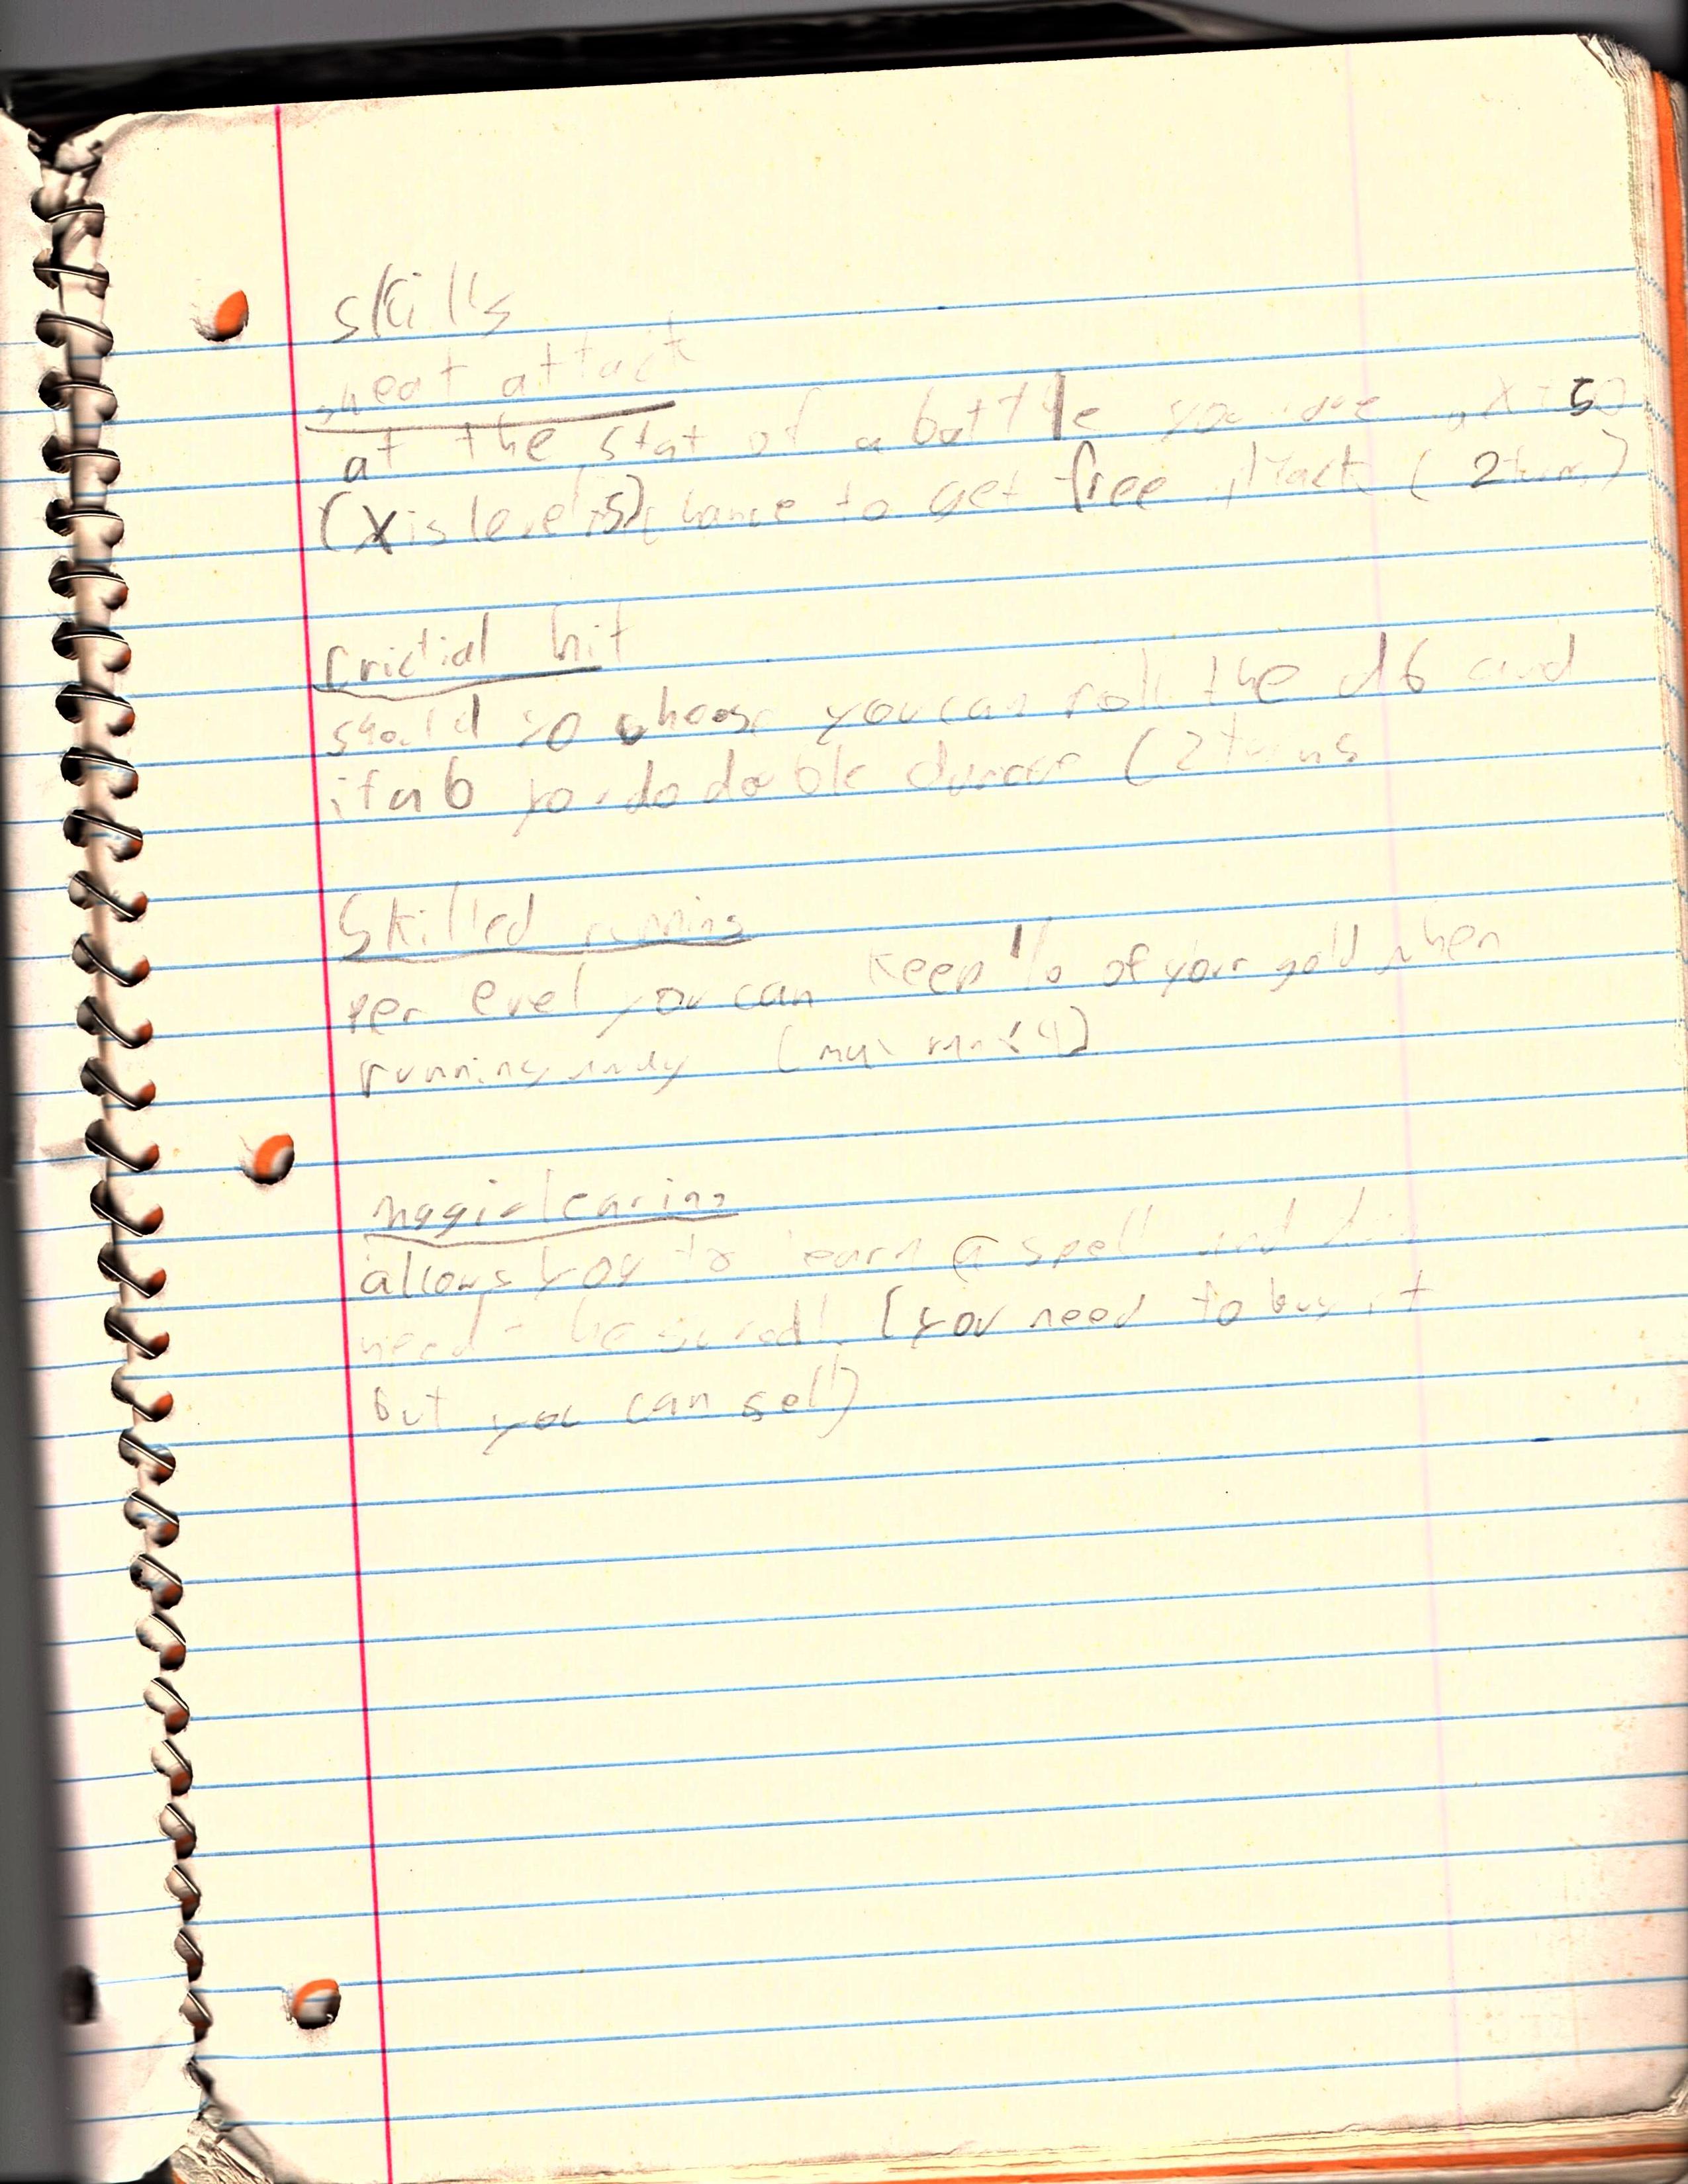 skills
attack
at the stat of a battle you 5
(X is level 5) chance to get free attack (2 turns)
crictial hit
should yo choose you can roll the d6 and
if a 6 yo do double (2 turns
Skilled running
per evel you can keep 1/10 of your gold when
running away (max rank 9)
allows you to learn a spell and
need (you need to buy it
but you can sell)